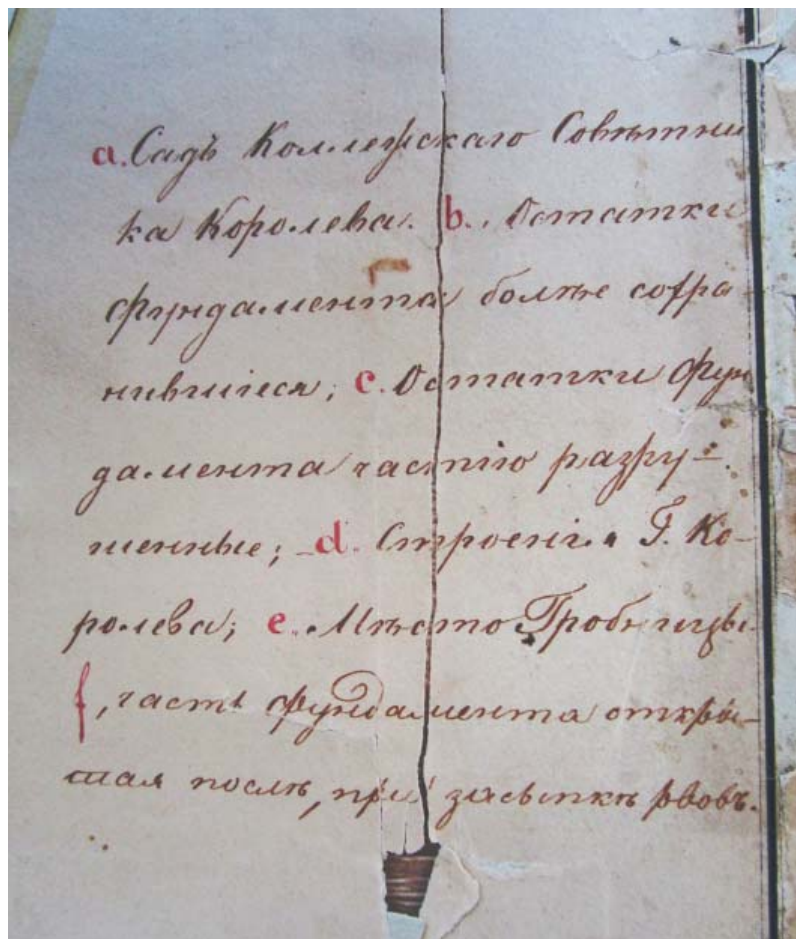 a. Садъ Коллежскаго Совѣтни
ка Королева. b. Остатки
фундамента болѣе сохра
нившіеся; c. Остатки фун
дамента частію разру-
шенные; d. Строенія Г. Ко-
ролева; e. Мѣсто Гробницы.
f, часть фундамента откры-
тая послѣ, при засыпкѣ рвовъ.